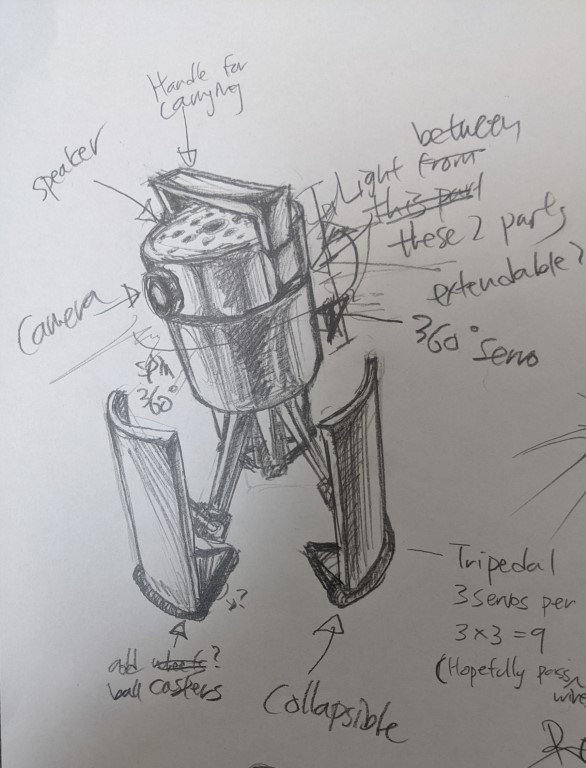 Handle for
carrying
speaker
Light from between
this part
these 2 parts
extendable?
Camera
360° servo
spin
360°
?
Tripedal
3 servos per
3 x 3 = 9
(Hopefully
add wheels?
ball casters
Collapsible